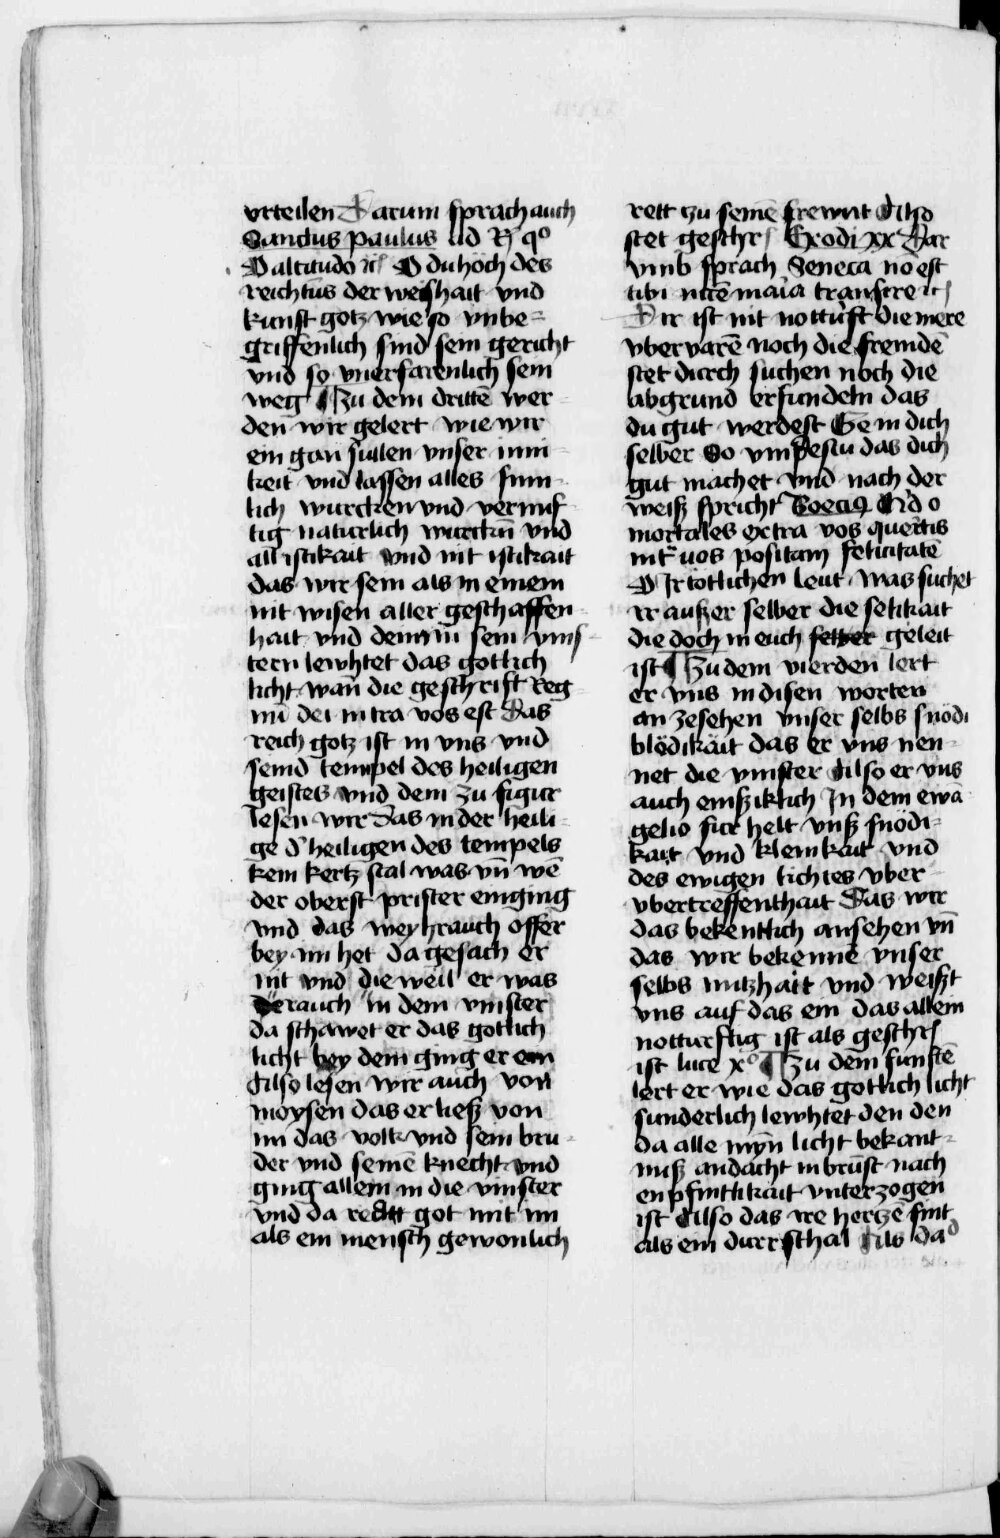 vrteilen Darum sprach auch
Sanctus paulus ad Rō qo
O altitudo ꝛc O du hoch des
reichtūs der weishait vnd
kunst gotz wie so vnbe-
griffenlich sind sein gericht
vnd so vnerfarenlich sein
weg ¶ Zu dem drittē wer-
den wir gelert wie wir
ein gan sullen vnser inni-
keit vnd lassen alles sinn-
lich wurcken vnd vernuf-
tig naturlich wurckn̄ vnd
all istikait vnd nit istikait
das wir sein als in einem
nit wisen aller geschaffen-
hait vnd denn in sein vins-
tern lewhtet das gotlich
licht wan̄ die geschrift Reg-
nū dei intra vos est Das
reich gotz ist in vns vnd
seind tempel des heiligen
geistes vnd dem zu figur
lesen wir das in der heili-
ge d' heiligen des tempels
kein kertz stal was vn̄ wē
der oberst prister einging
vnd das weyhrauch offer
bey im het da gesach er
nit vnd die weil er was
der rauch in dem vinster
da schawet er das gotlich
licht bey dem ging er ein
Also lesen wir auch von
moysen das er ließ von
im das volk vnd sein bru-
der vnd seinē knecht vnd
ging allein in die vinster
vnd da redtt got mit im
als ein mensch gewonlich
rett zu seinē frewnt Also
stet geschr Exodi xx Dar
vmb sprach Seneca nō est
tibi nccē maīa transfre ꝛc
Dir ist nit notturft die mere
vbervarē noch die fremdē
stet durch suchen noch die
abgrund erfundeln das
du gut werdest Ge in dich
selber So vindestu das dich
gut machet vnd nach der
weiß spricht Boeciꝰ Q'd o
mortales extra vos queritis
int' uos positam felicitatē
O Ir totlichen leut was suchet
ir außer selber die selikait
die doch in euch selber geleit
ist ¶ Zu dem vierden lert
er vns in disen worten
an zesehen vnser selbs snödi
blödikäit das er vns nen-
net die vinster Also er vns
auch einßiklich In dem ewā
gelio fur helt vnß snödi-
kait vnd kleinkait vnd
des ewigen lichtes vber-
vbertreffenthait Das wir
das bekentlich ansehen vn̄
das wir bekennē vnser
selbs nutzhait vnd weißt
vns auf das ein das allein
notturftig ist als geschr
ist luce xo ¶ Zu dem funftē
lert er wie das gotlich licht
sunderlich lewhtet den den
da alle mȳn licht bekant-
nuß andacht inbrunst nach
enpfintlikait vnterzogen
ist Also das ire hertzē sint
als ein durr sthal Als da